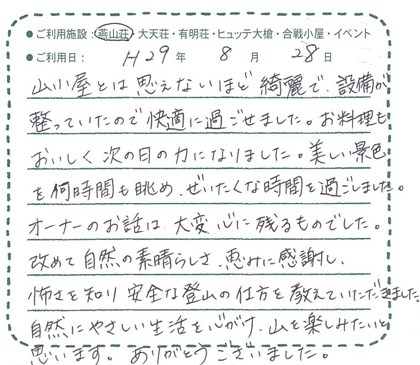 ●ご利用施設:燕山荘・大天荘・有明荘・ヒュッテ大槍・合戦小屋・イベント
●ご利用日: H29年 8月 28日
山小屋とは思えないほど綺麗で、設備が
整っていたので快適に過ごせました。お料理も
おいしく次の日の力になりました。美しい景色
を何時間も眺め、ぜいたくな時間を過ごしました。
オーナーのお話は大変心に残るものでした。
改めて自然の素晴らしさ、恵みに感謝し、
怖さを知り安全な登山の仕方を教えていただきました
自然にやさしい生活を心がけ、山を楽しみたいと
思います。ありがとうございました。